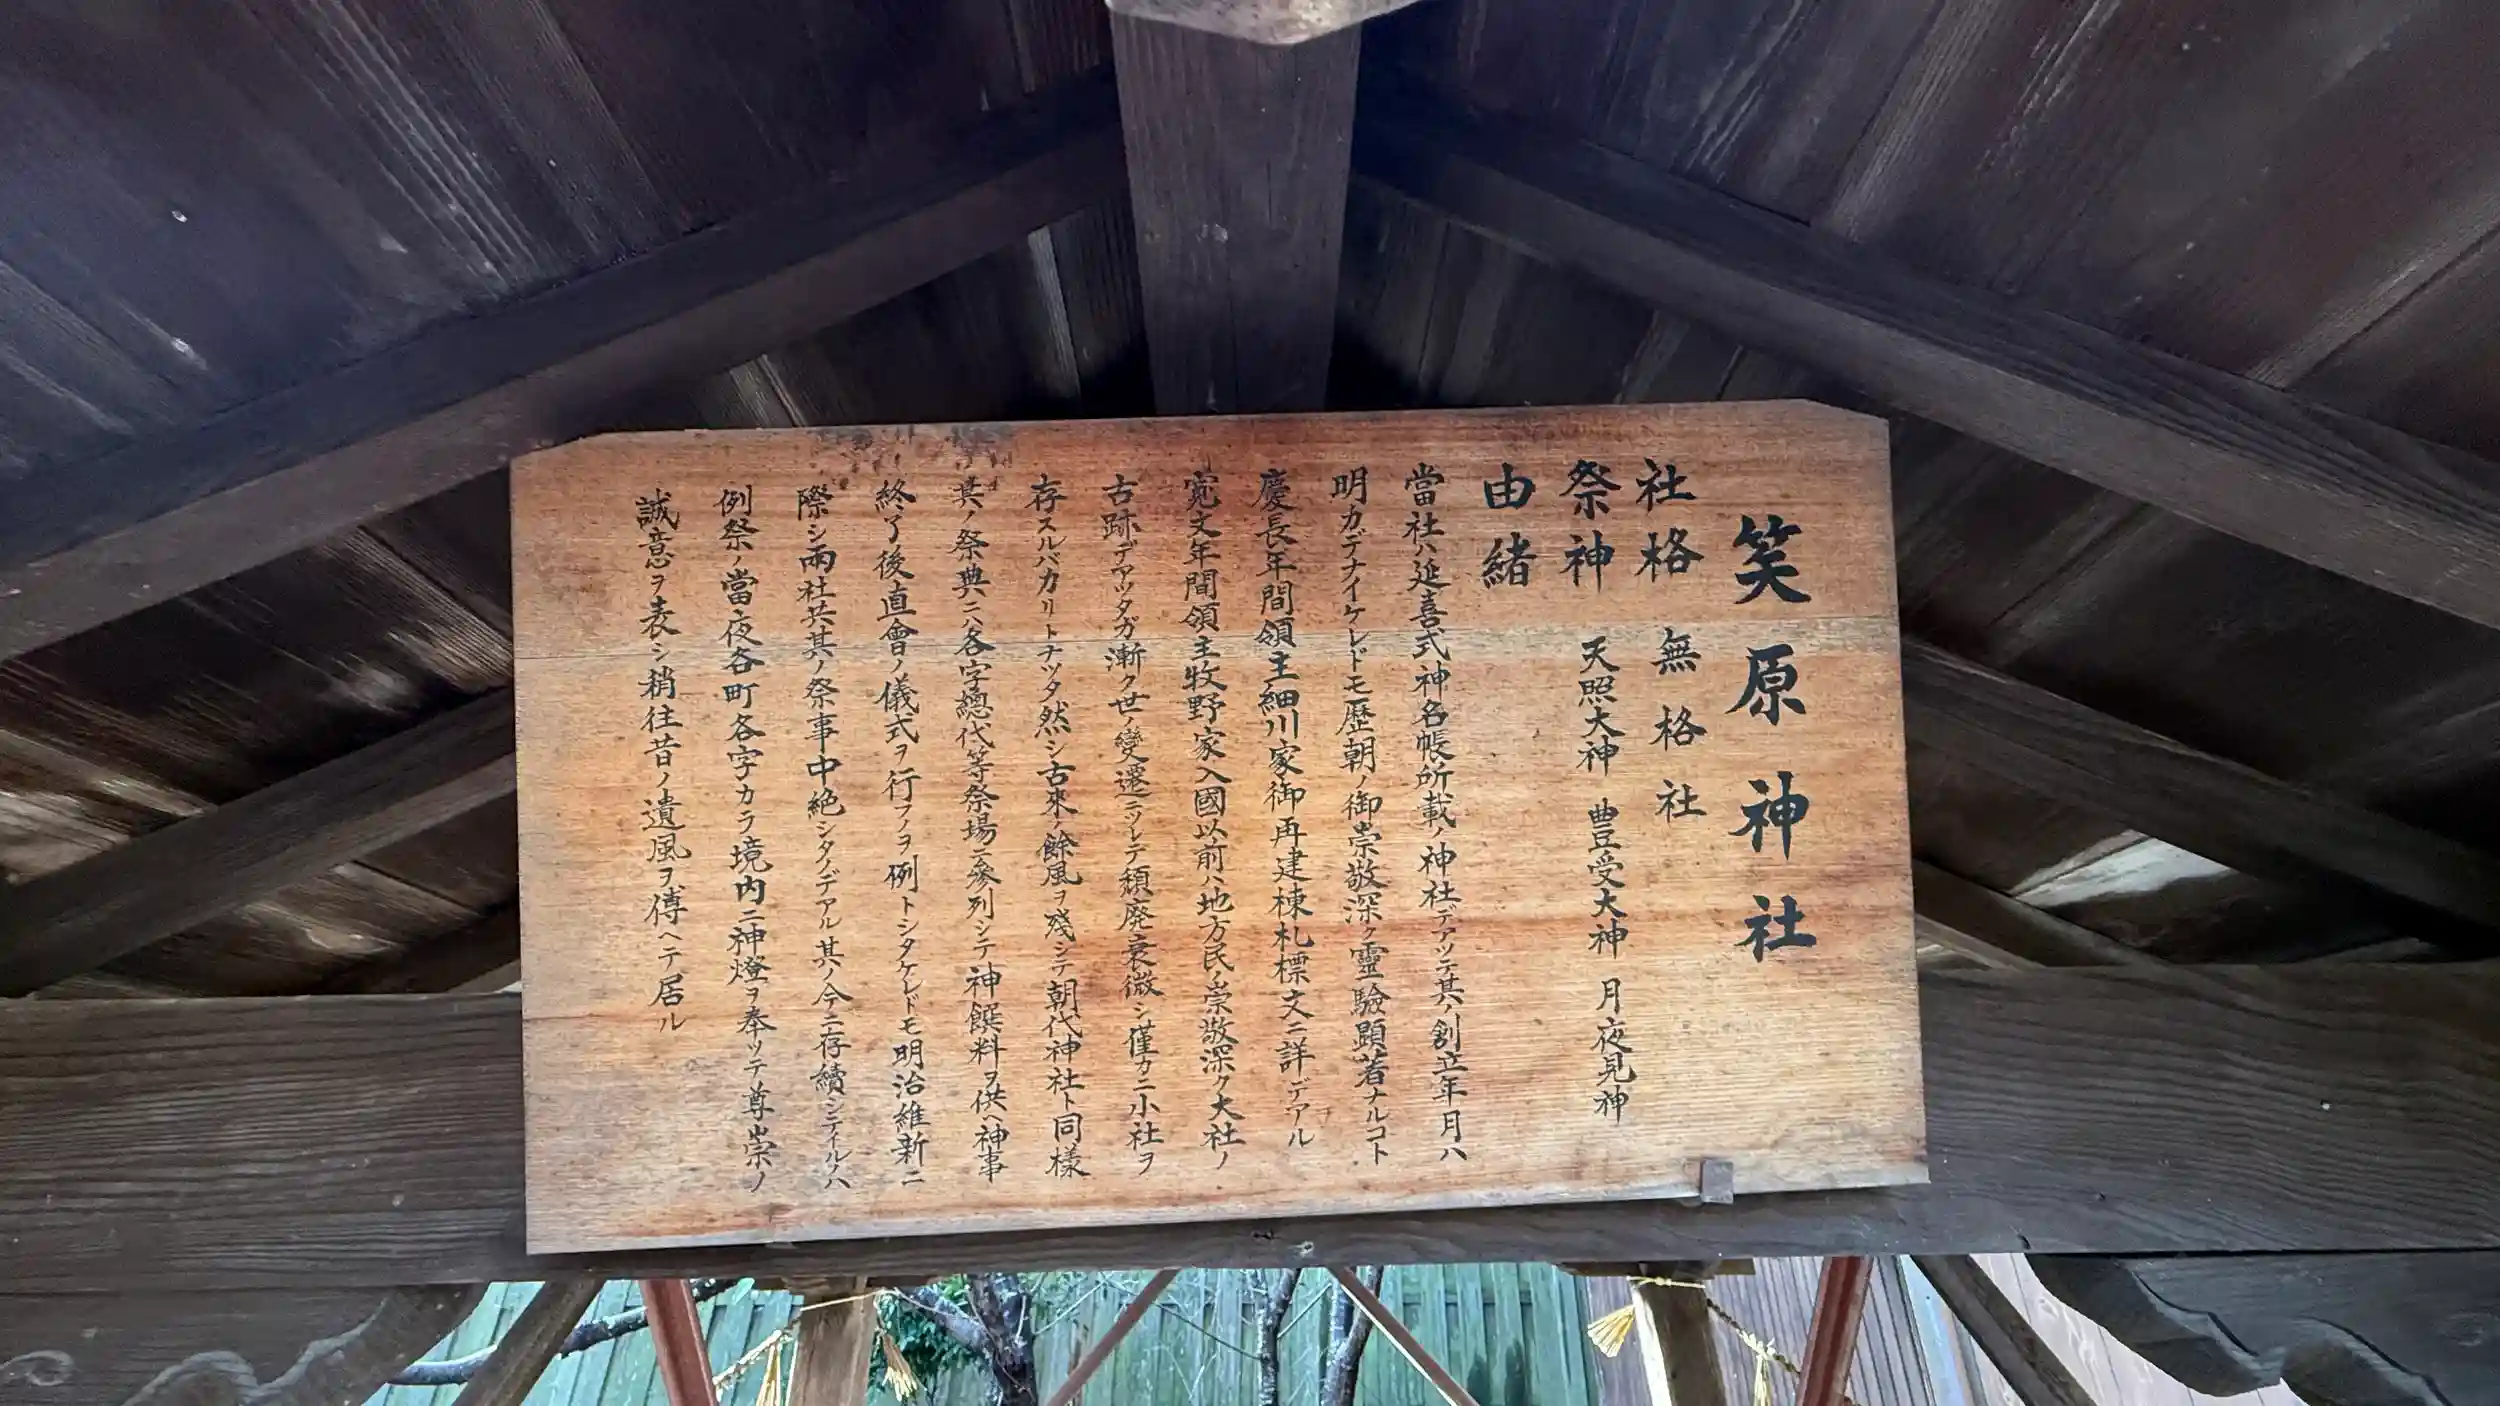 笑原神社
社格 無格社
祭神 天照大神 豊受大神 月夜見神
由緒
當社ハ延喜式神名帳所載ノ神社デアツテ其ノ創立年月ハ
明カデナイケレドモ歴朝ノ御崇敬深ク靈驗顕著ナルコト
慶長年間領主細川家御再建棟札標文ニ詳デアル
寛文年間領主牧野家入國以前ハ地方民ノ崇敬深ク大社ノ
古跡デアツタガ漸ク世ノ變遷ニツレテ頽廃衰微シ僅カニ小社ヲ
存スルバカリトナツタ然シ古来ノ餘風ヲ残シテ朝代神社ト同様
其ノ祭典ニハ各字總代等祭場ニ参列シテ神饌料ヲ供ヘ神事
終了後直會ノ儀式ヲ行フノヲ例トシタケレドモ明治維新ニ
際シ両社共其ノ祭事中絶シタノデアル其ノ今ニ存續シテイルノハ
例祭ノ當夜各町各字カラ境内ニ神燈ヲ奉ツテ尊崇ノ
誠意ヲ表シ稍往昔ノ遺風ヲ傳ヘテ居ル